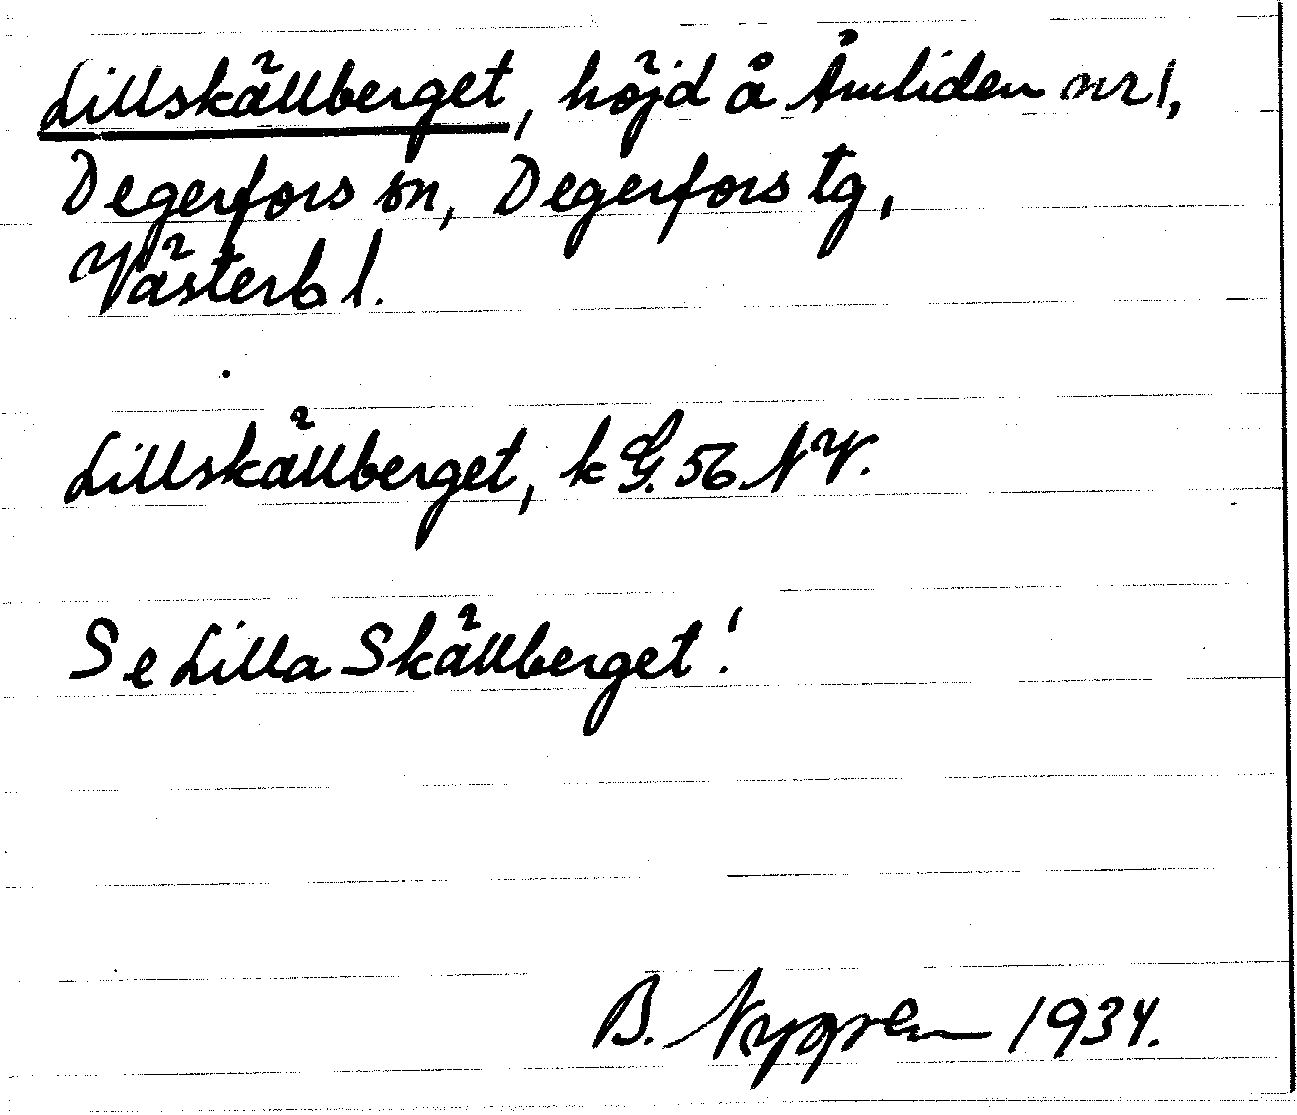 Lillskällberget, höjd å Åmliden nr 1,
Degerfors sn, Degerfors tg,
Västerb l.
Lillskällberget, k G. 56 NV.
Se Lilla Skällberget!
B. Nygren 1934.